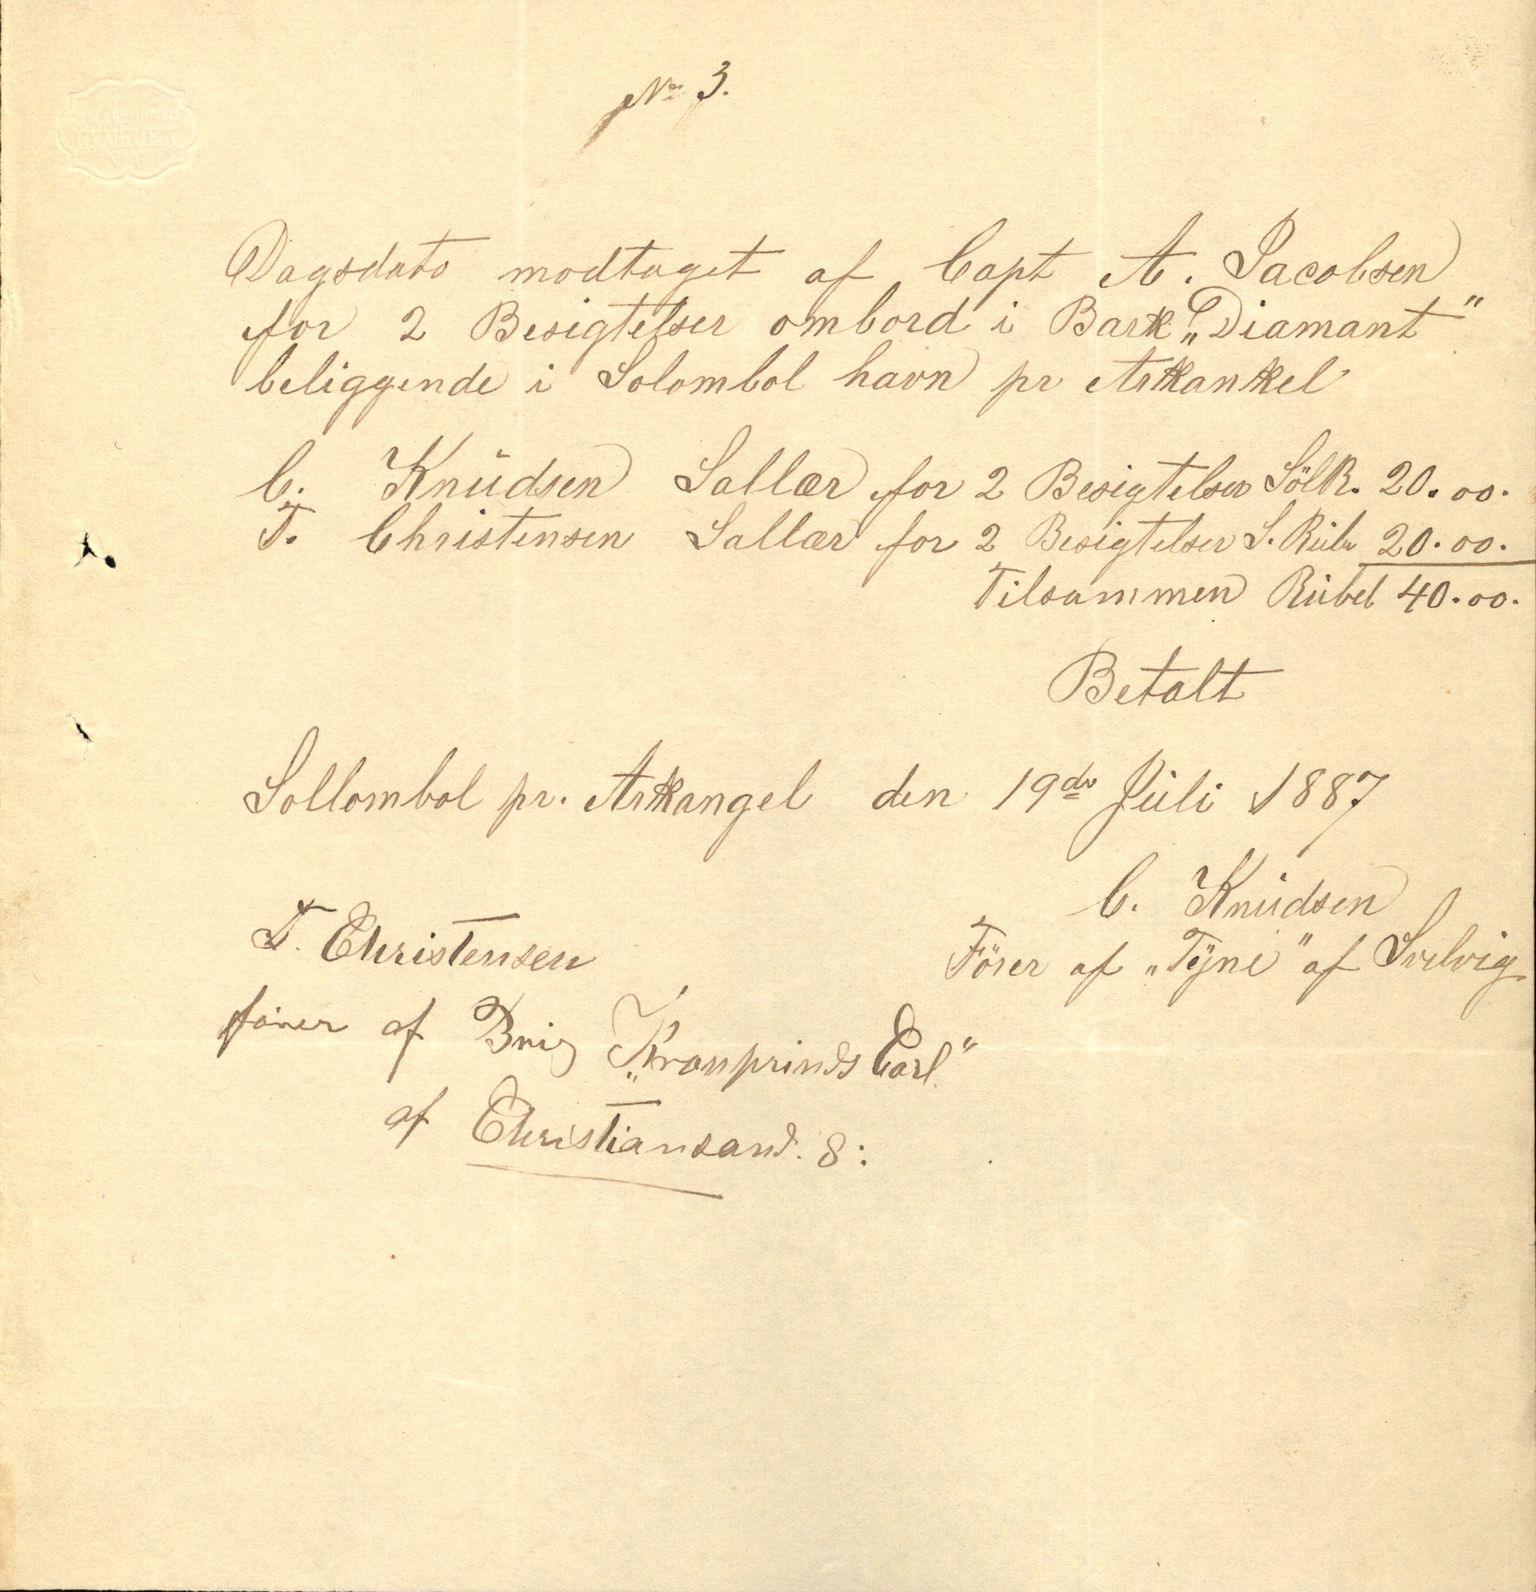 No 3.
Dagsdato modtaget af Capt A. Jacobsen
for 2 Besigtelser ombord i Bark „Diamant"
beliggende i Solombol havn pr Arkankel
C. Knüdsen Sallær for 2 Besigtelser SölR. 20.00.
T. Christensen Sallær for 2 Besigtelser S. Rübr 20.00.
Tilsammen Rübel 40.00.
Betalt
Sollombol pr. Arkangel den 19de Jüli 1887
C. Knüdsen
Förer af „Tÿne" af Svelvig
T. Christensen
förer af Brig „Kronprinds Carl"
af Christiansand. S: